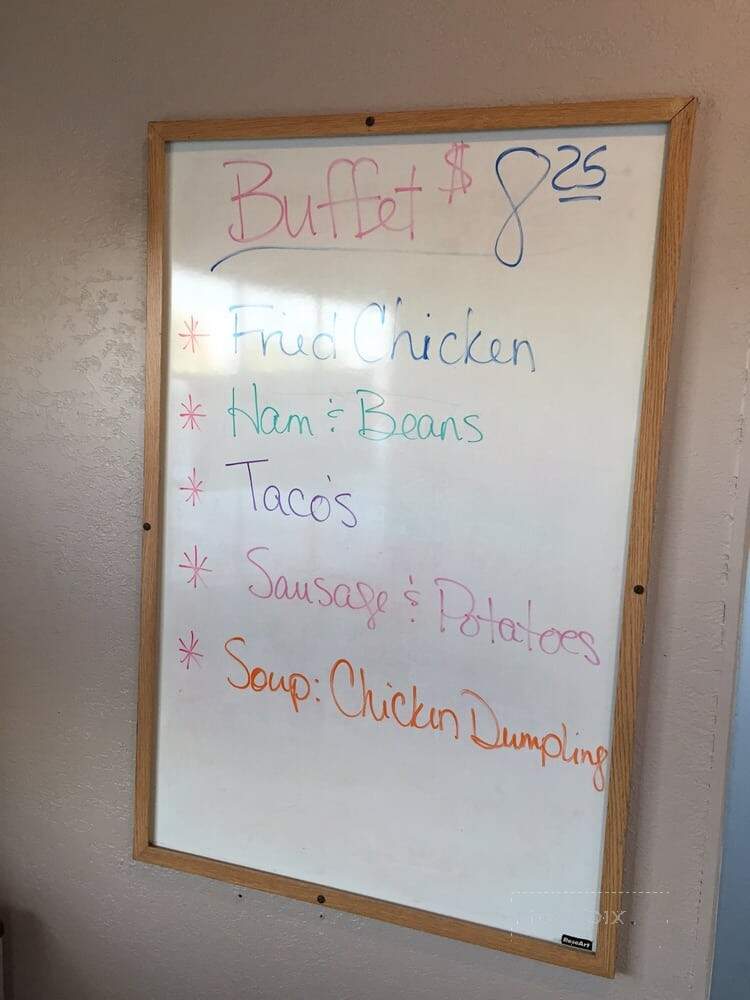 Buffet $ 8 25
* Fried Chicken
* Ham & Beans
* Taco's
* Sausage & Potatoes
* Soup: Chicken Dumpling
RoseArt